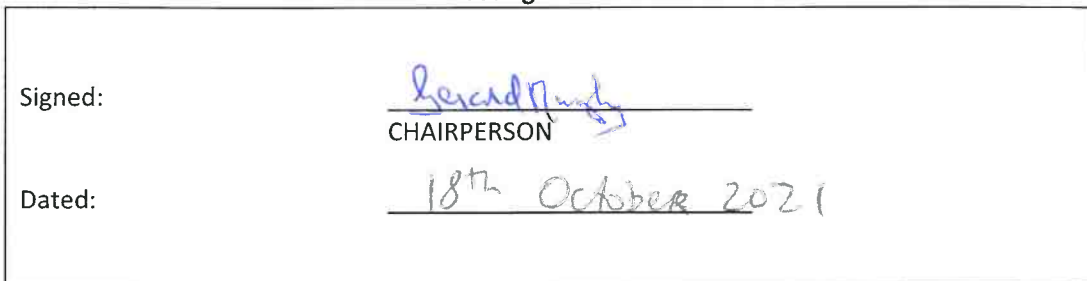 Signed:
Gerard Murphy
CHAIRPERSON
Dated:
18th October 2021